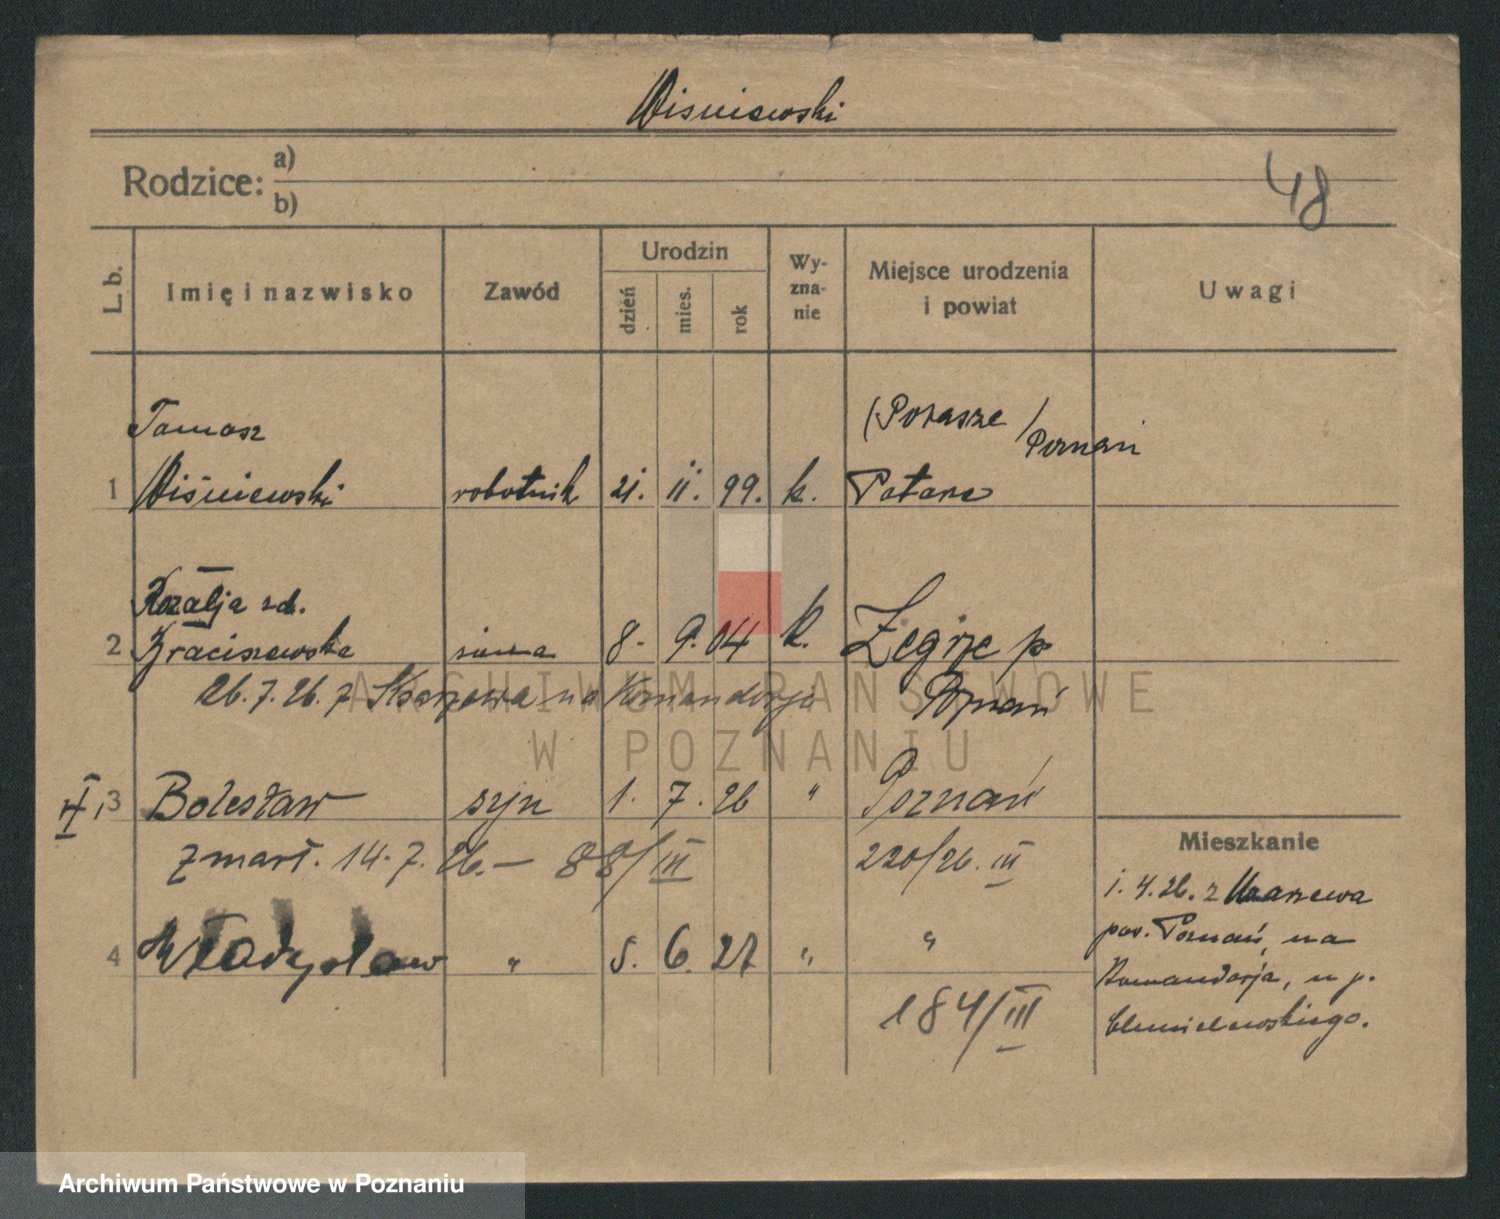 Wiśniewski
Rodzice: a)
b)
48
L. b.
Imię i nazwisko
Zawód
Urodzin
dzień
mies.
rok
Wy-
zna-
nie
Miejsce urodzenia
i powiat
Uwagi
Tomasz (Potasze /
Poznań
1 Wiśniewski robotnik 21. 11. 99. k.
Rozalja zd.
2 żona 8. 9. 04 k. Żegrze p
26.7.26. z na Komandorja Poznań
3 Bolesław syn 1. 7. 26 " Poznań
zmarł. 14.7.26.– 88/III 220/26. III
4 Władysław " 5. 6. 27 " "
184/III
Mieszkanie
1.4.26. z
pow. Poznań, na
Komandorja, u p.
Chmielewskiego.
ARCHIWUM PAŃSTWOWE
W POZNANIU
Archiwum Państwowe w Poznaniu